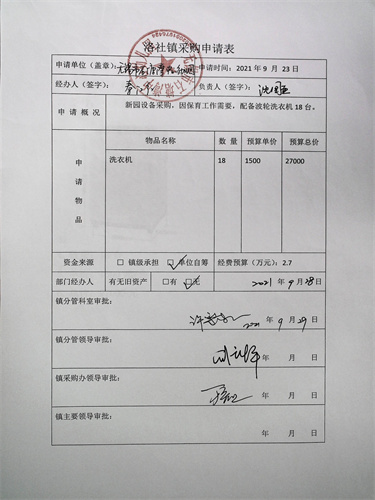 洛社镇采购申请表
申请单位（盖章）： 申请时间：2021年9月23日
经办人（签字）： 负责人（签字）：
申请概况 新园设备采购，因保育工作需要，配备波轮洗衣机18台。
申请物品 物品名称 数量 预算单价 预算总价
洗衣机 18 1500 27000
资金来源 □镇级承担 □单位自筹 经费预算（万元）：2.7
部门经办人 有无旧资产 □有 □无 2021年9月28日
镇分管科室审批：
2021年9月29日
镇分管领导审批：
年 月 日
镇采购办领导审批：
年 月 日
镇主要领导审批：
年 月 日